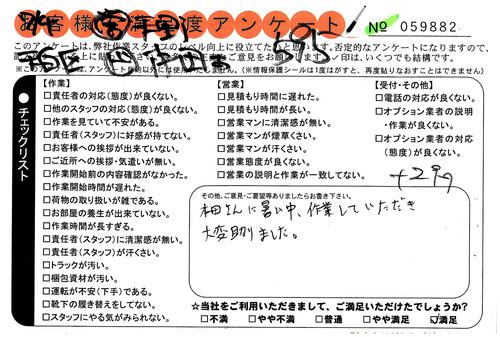 お客様満足度アンケート
№ 059882
595
このアンケートは、弊社作業スタッフのレベル向上に役立てたいと思います。否定的なアンケートになりますので、
ご意見をお願いします。/印は、いくつでも結構です。
(※情報保護シールは1度はがすと、再度貼りなおすことはできません)
●チェックリスト
【作業】
□責任者の対応(態度)が良くない。
□他のスタッフの対応(態度)が良くない。
□作業を見ていて不安がある。
□責任者(スタッフ)に好感が持てない。
□お客様への挨拶が出来ていない。
□ご近所への挨拶・気遣いが無い。
□作業開始前の内容確認がなかった。
□作業開始時間が遅れた。
□荷物の取り扱いが雑である。
□お部屋の養生が出来ていない。
□作業時間が長すぎる。
□責任者(スタッフ)に清潔感が無い。
□責任者(スタッフ)が汗くさい。
□トラックが汚い。
□梱包資材が汚い。
□運転が不安(下手)である。
□靴下の履き替えをしてない。
□スタッフにやる気がみられない。
【営業】
□見積もり時間に遅れた。
□見積もり時間が長い。
□営業マンに清潔感が無い。
□営業マンが煙草くさい。
□営業マンが汗くさい。
□営業態度が良くない。
□営業の説明と作業が一致してない。
【受付・その他】
□電話の対応が良くない。
□オプション業者の説明
・作業が良くない。
□オプション業者の対応
(態度)が良くない。
その他、ご意見・ご要望等ありましたらお書き下さい。
本田さんに暑い中、作業していただき
大変助りました。
☆当社をご利用いただきまして、ご満足いただけたでしょうか?
□不満 □やや不満 □普通 □やや満足 ☑満足